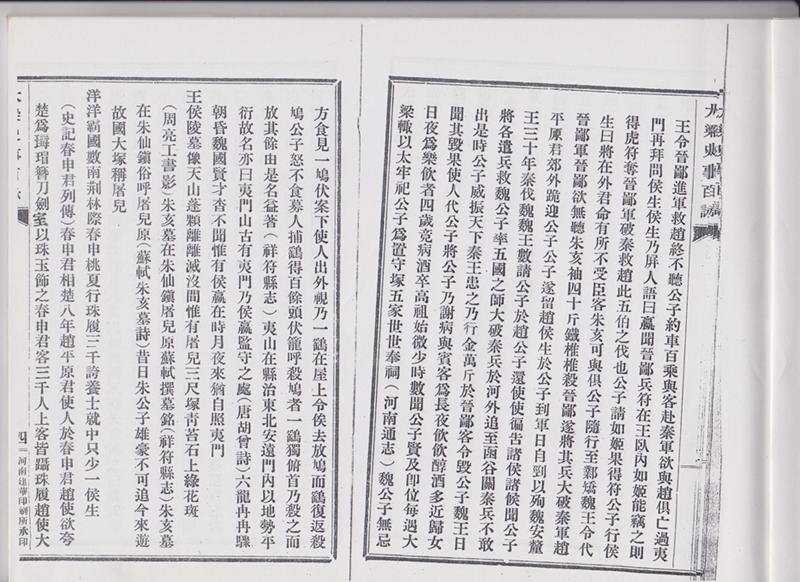 大梁史事百詠
王令晉鄙進軍救趙終不聽公子約車百乘與客赴秦軍欲與趙俱亡過夷
門再拜問侯生侯生乃屏人語曰嬴聞晉鄙兵符在王臥內如姬能竊之則
得虎符奪晉鄙軍破秦救趙此五伯之伐也公子請如姬果得符公子行侯
生曰將在外君命有所不受臣客朱亥可與俱公子隨行至鄴矯魏王令代
晉鄙軍晉鄙欲無聽朱亥袖四十斤鐵椎椎殺晉鄙遂將其兵大破秦軍趙
平原君郊外跪迎公子公子遂留趙侯生於公子到軍日自刭以殉魏安釐
王三十年秦伐魏魏王數請公子於趙公子還使使徧告諸侯諸侯聞公子
將各遣兵救魏公子率五國之師大破秦兵於河外追至函谷關秦兵不敢
出是時公子威振天下秦王患之乃行金萬斤於晉鄙客令毀公子魏王日
聞其毀果使人代公子將公子乃謝病與賓客爲長夜飲飲醇酒多近歸女
日夜爲樂飲者四歲竟病酒卒高祖始微少時數聞公子賢及即位每過大
梁輒以太牢祀公子爲置守塚五家世世奉祠（河南通志）魏公子無忌
方食見一鳩伏案下使人出外視乃一鷂在屋上令侯去放鳩而鷂復返殺
鳩公子怒不食募人捕鷂得百餘頭伏籠呼殺鳩者一鷂獨俯首乃殺之而
放其餘由是名益著（祥符縣志）夷山在縣治東北安遠門內以地勢平
衍故名亦曰夷門山古有夷門乃侯嬴監守之處（唐胡曾詩）六龍冉冉驟
朝昏魏國賢才杳不聞惟有侯嬴在時月夜來猶自照夷門
王侯陵墓像天山蓬顆離離滅沒間惟有屠兒三尺塚靑苔石上綠花斑
（周亮工書影）朱亥墓在朱仙鎭屠兒原蘇軾撰墓銘（祥符縣志）朱亥墓
在朱仙鎭俗呼屠兒原（蘇軾朱亥墓詩）昔日朱公子雄豪不可追今來遊
故國大塚稱屠兒
洋洋霸國數南荆林際春申桃夏行珠履三千誇養士就中只少一侯生
（史記春申君列傳）春申君相楚八年趙平原君使人於春申君趙使欲夸
楚爲瑇瑁簪刀劍室以珠玉飾之春申君客三千人上客皆躡珠履趙使大
四
河南建華印刷所承印